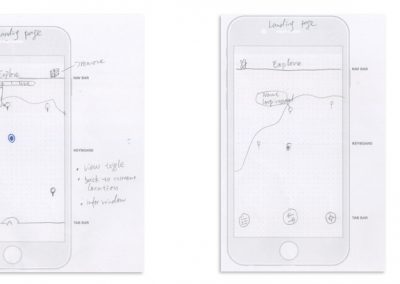 Landing page
Explore
NAV BAR
KEYBOARD
• View toggle
• back to current
location
• infor window
TAB BAR
Landing page
Explore
NAV BAR
Name
KEYBOARD
TAB BAR